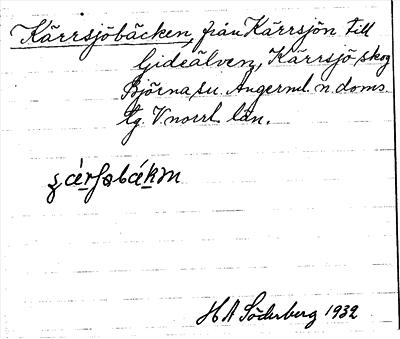 Kärrsjöbäcken, från Kärrsjön till
Gideälven, Kärrsjö skog
Björna sn. Ångerml. n. doms.
lg. V norrl. län.
H A Söderberg 1932